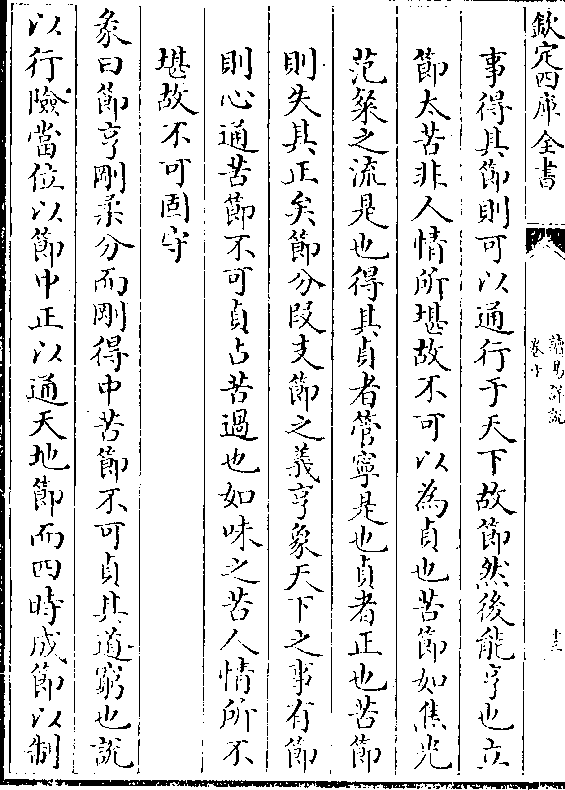 欽定四庫全書
讀易詳說
卷十
十三
事得其節則可以通行于天下故節然後能亨也立
節太苦非人情所堪故不可以為貞也苦節如焦光
范粲之流是也得其貞者管寧是也貞者正也苦節
則失其正矣節分段支節之義亨象天下之事有節
則心通苦節不可貞占苦過也如味之苦人情所不
堪故不可固守
彖曰節亨剛柔分而剛得中苦節不可貞其道窮也說
以行險當位以節中正以通天地節而四時成節以制